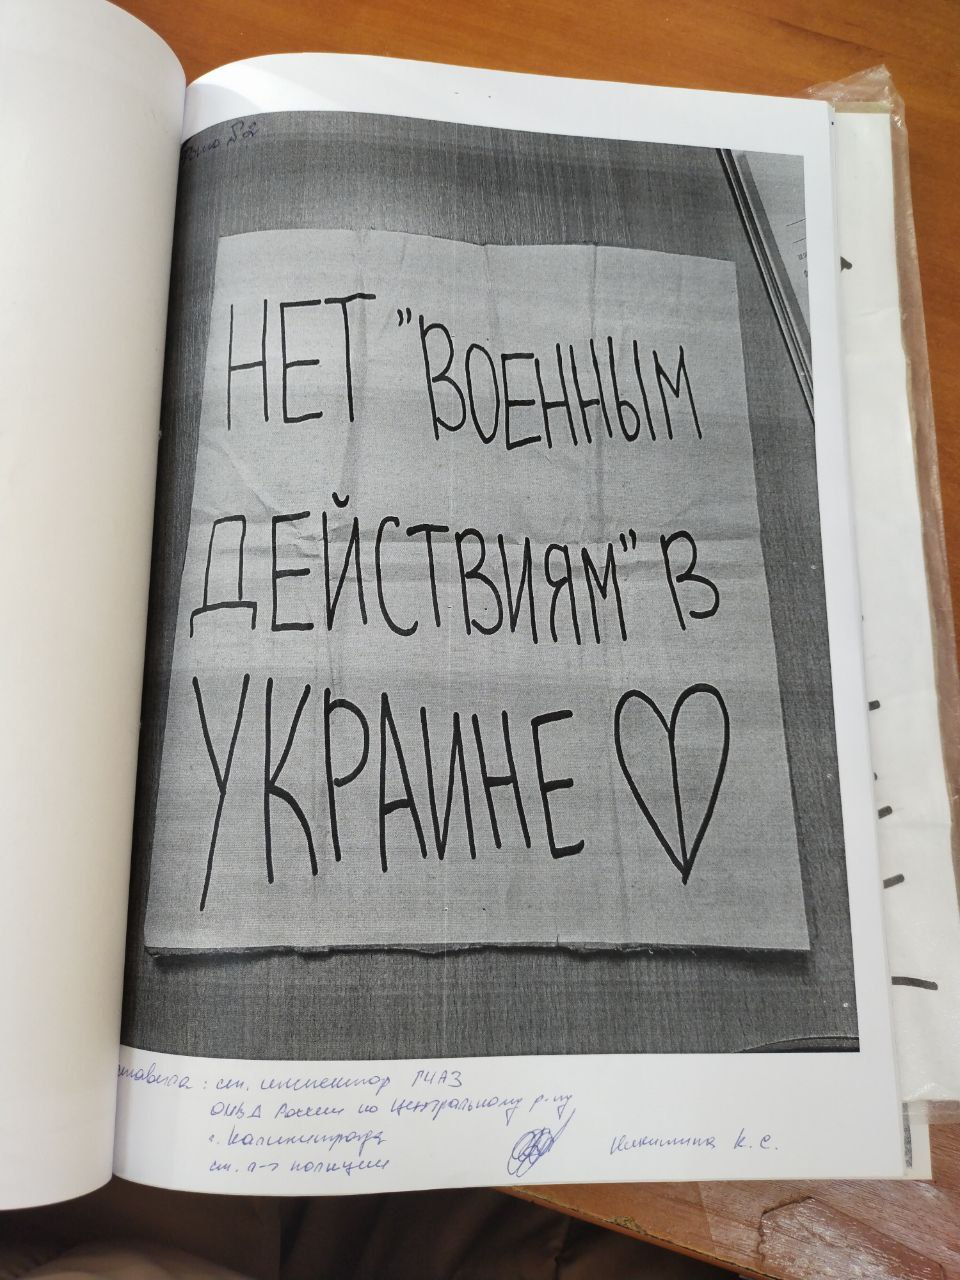 Фото №2
НЕТ "ВОЕННЫМ
ДЕЙСТВИЯМ" В
УКРАИНЕ
ст. инспектор ГИАЗ
ОМВД России по Центральному р-ну
г. Калининграда
ст. л-т полиции
Никитина К. С.